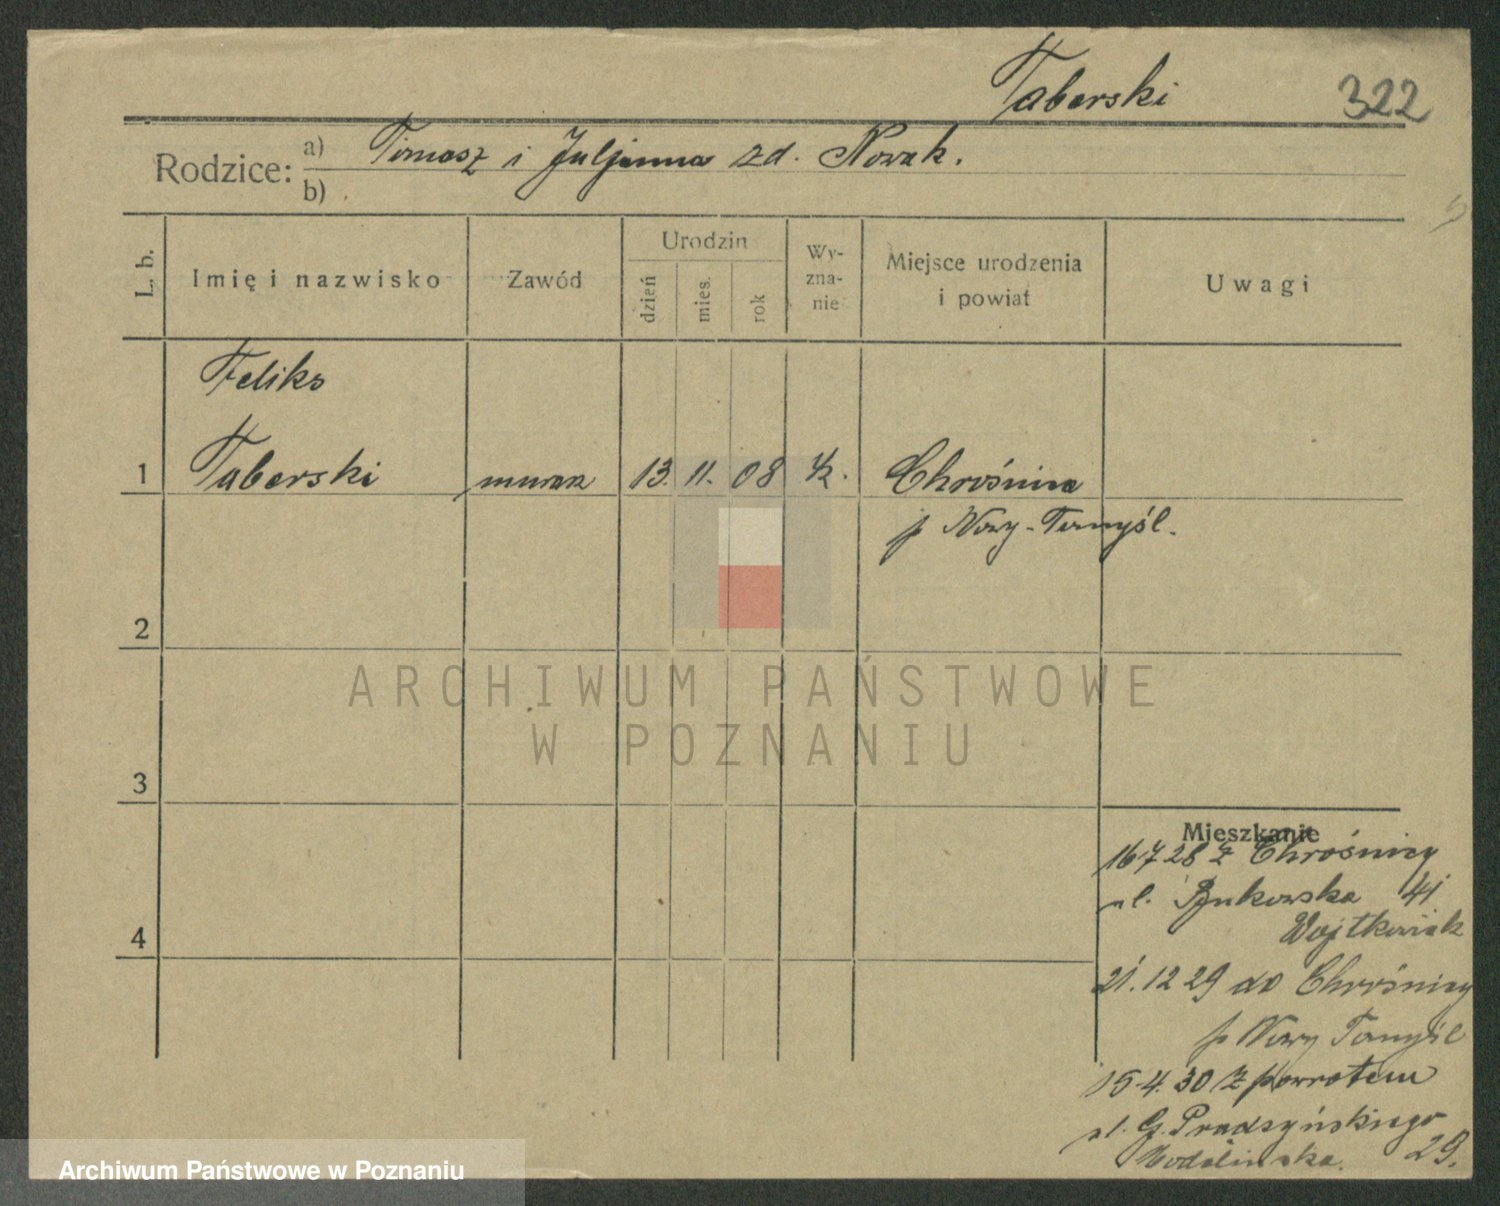 Taberski 322
Rodzice: a) Tomasz i Juljanna zd. Nowak.
b)
L. b. Imię i nazwisko Zawód Urodzin dzień mies. rok Wy-zna-nie Miejsce urodzenia i powiat Uwagi
Feliks
1 Taberski murarz 13. 11. 08 k. Chrośnica
p Nowy-Tomyśl.
2
ARCHIWUM PAŃSTWOWE
W POZNANIU
3
Mieszkanie
16 7 28 z Chrośnicy
ul. Bukowska 41
Wojtkowiak
4
21.12 29 do Chrośnicy
p Nowy Tomyśl
15.4.30 z powrotem
ul. G. Prądzyńskiego
29.
Archiwum Państwowe w Poznaniu